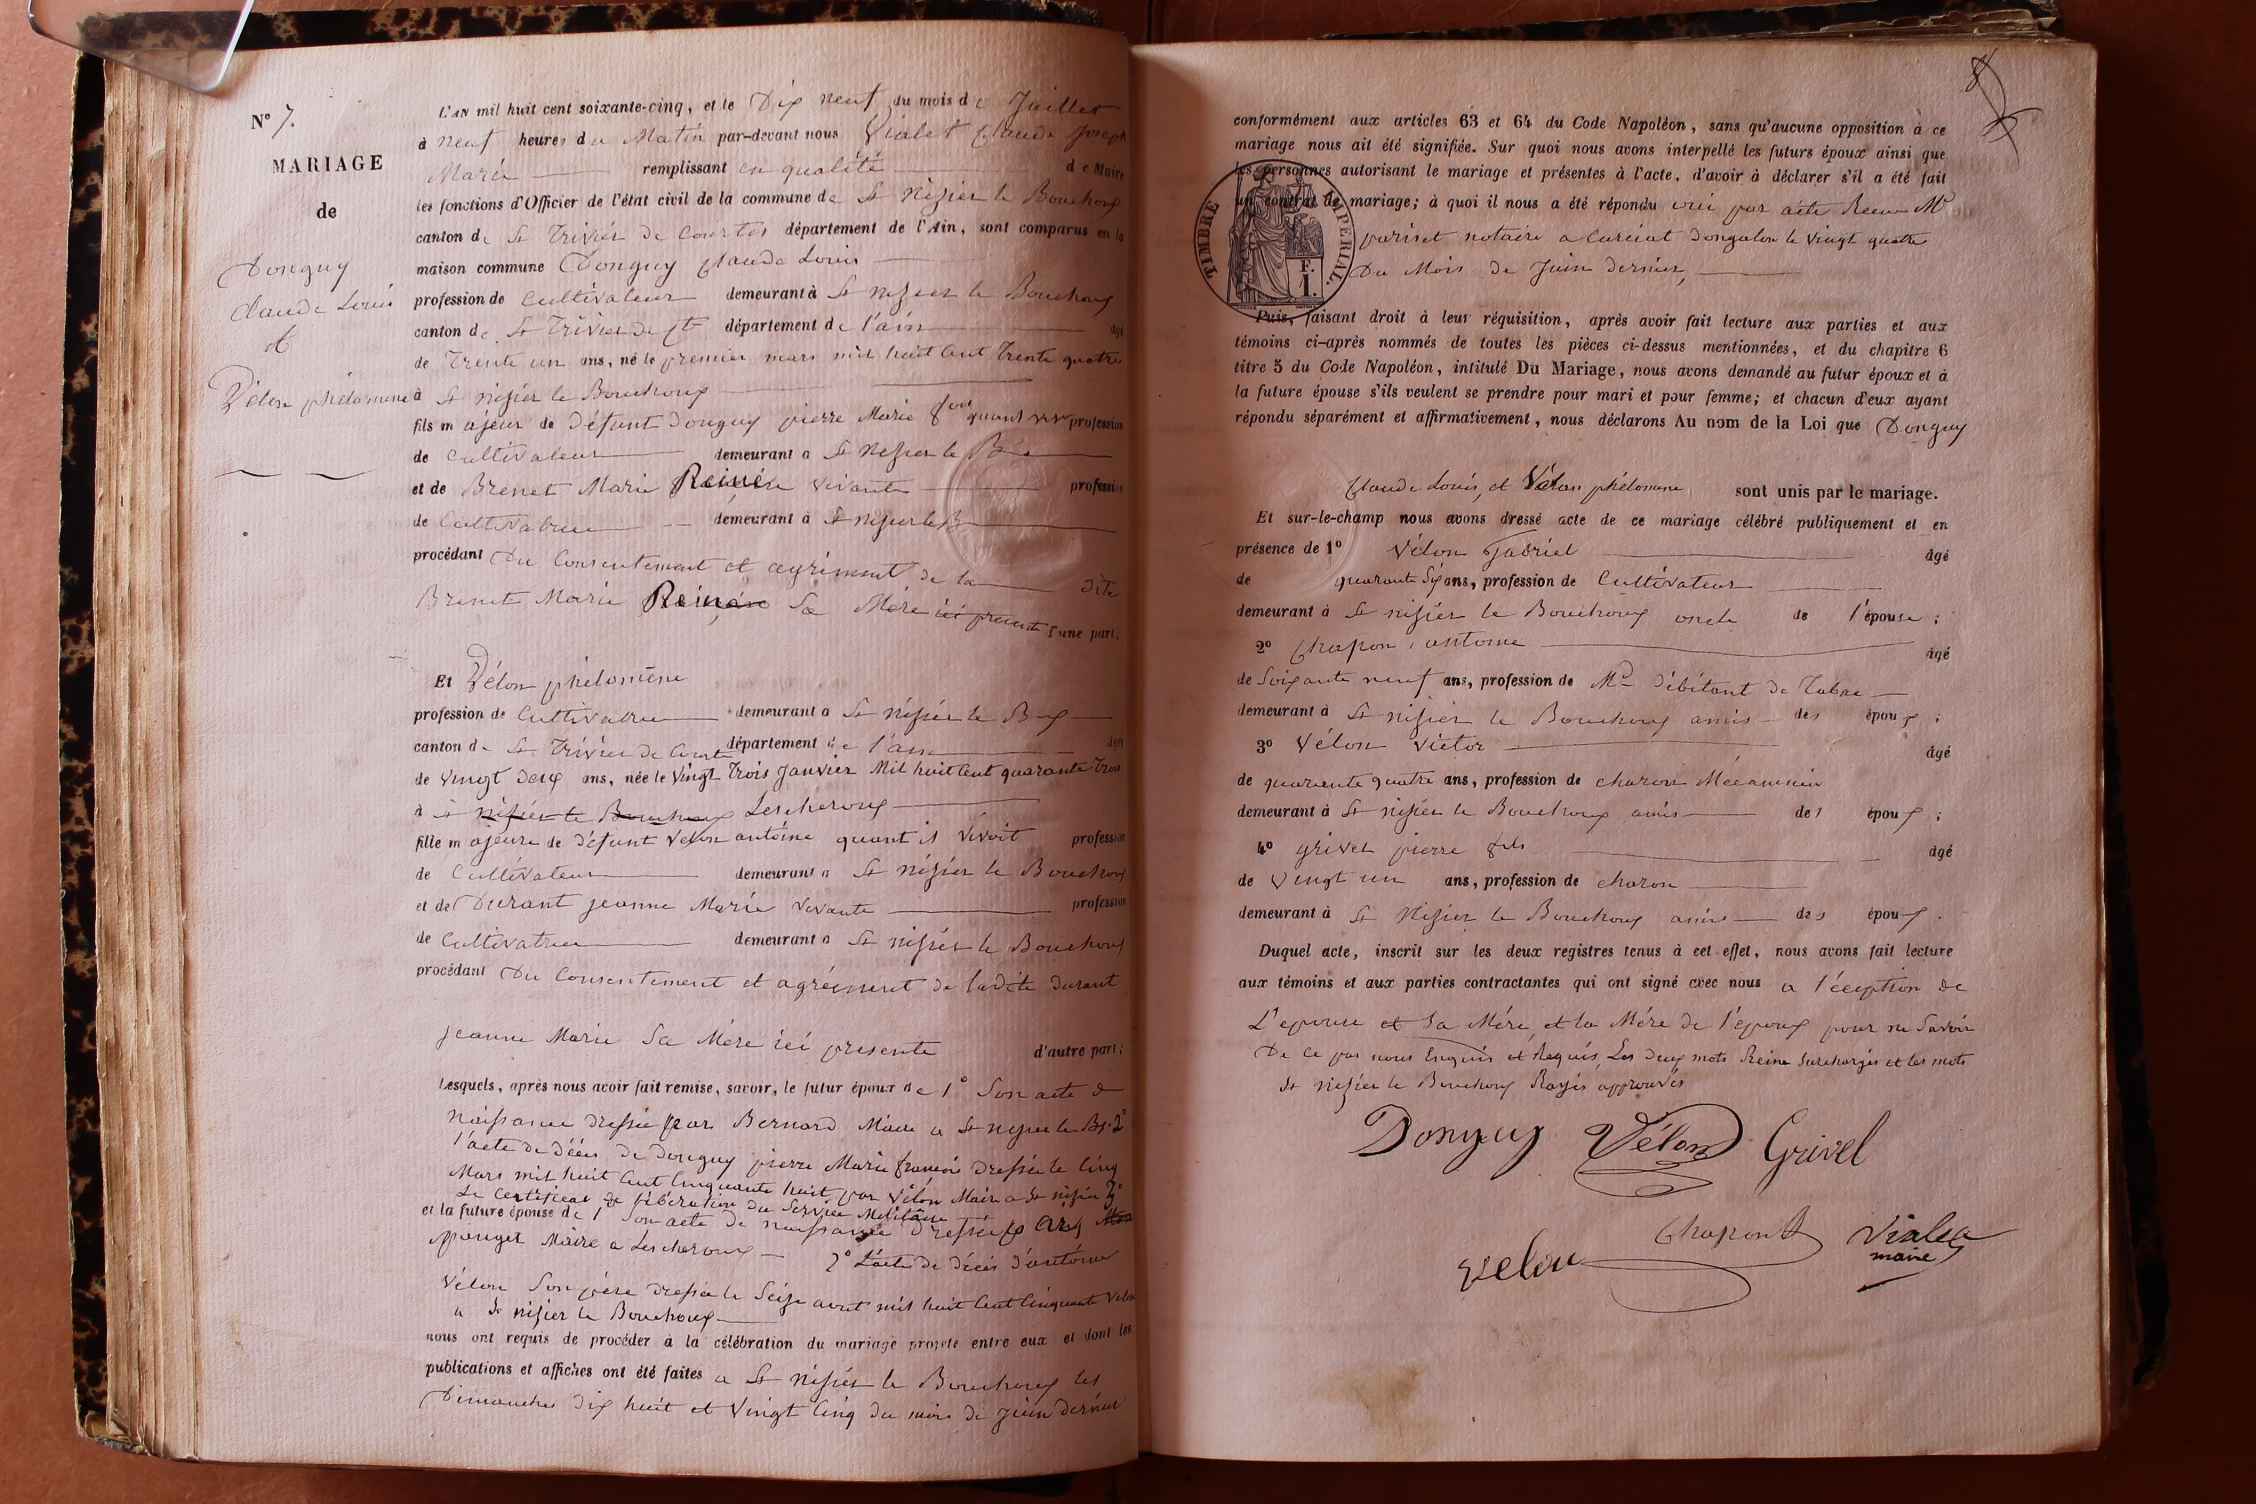 N° 7.
MARIAGE
de
Donguy
Claude Louis
et
Vélon phélomène
L'AN mil huit cent soixante-cinq, et le Dix neuf du mois de Juillet
à neuf heures du Matin par-devant nous Vialet Claude Joseph
Marie remplissant en qualité de Maire
les fonctions d'Officier de l'état civil de la commune de St Nizier le Bouchoux
canton de St Trivier de Courtes département de l'Ain, sont comparus en la
maison commune Donguy Claude Louis
profession de Cultivateur demeurant à St nizier le Bouchoux
canton de St Trivier de Ctes département de l'ain âgé
de Trente un ans, né le premier mars mil huit Cent Trente quatre
à St nizier le Bouchoux
fils majeur de Défunt Donguy pierre Marie fois quant vivr profession
de Cultivateur demeurant à St Nizier le
et de Brenet Marie Reine vivante profession
de Cultivatrice demeurant à St nizier le B
procédant Du Consentement et agrément de la dite
Brenet Marie Reine Sa Mère ici présente d'une part;
Et Vélon phélomène
profession de Cultivatrice demeurant à St nizier le Bx
canton de St Trivier de Courtes département de l'ain âgée
de vingt deux ans, née le vingt Trois Janvier Mil huit Cent quarante Trois
à St nizier le Bouchoux Lescheroux
fille majeure de Défunt Vélon antoine quant il Vivoit profession
de Cultivateur demeurant à St nizier le Bouchoux
et de Durant jeanne Marie vivante profession
de Cultivatrice demeurant à St nizier le Bouchoux
procédant Du Consentement et agrément de ladite Durant
jeanne Marie Sa Mère ici présente d'autre part;
Lesquels, après nous avoir fait remise, savoir, le futur époux de 1° Son acte de
Naissance Dressée par Bernard Maire a St nizier le Bx. 2°
l'acte de Décès de Donguy pierre Marie françois Dressée le Cinq
Mars mil huit Cent Cinquante huit par Vélon Maire a St nizier 3°
Le Certificat de libération du Service Militaire
et la future épouse de 1° Son acte de naissance Dressée p
Maire a Lescheroux 2° L'acte de Décès d'antoine
Vélon Son père Dressée le Seize aout mil huit Cent Cinquante
a St nizier le Bouchoux
nous ont requis de procéder à la célébration du mariage projeté entre eux et dont les
publications et affiches ont été faites a St Nizier le Bouchoux les
Dimanches Dix huit et Vingt Cinq du mois de Juin Dernier
8
conformément aux articles 63 et 64 du Code Napoléon, sans qu'aucune opposition à ce
mariage nous ait été signifiée. Sur quoi nous avons interpellé les futurs époux ainsi que
les personnes autorisant le mariage et présentes à l'acte, d'avoir à déclarer s'il a été fait
un contrat de mariage; à quoi il nous a été répondu oui par acte Recu Me
pariset notaire a Curciat Dongalon le Vingt quatre
Du Mois de Juin Dernier,
TIMBRE IMPERIAL.
F.
1.
Puis, faisant droit à leur réquisition, après avoir fait lecture aux parties et aux
témoins ci-après nommés de toutes les pièces ci-dessus mentionnées, et du chapitre 6
titre 5 du Code Napoléon, intitulé Du Mariage, nous avons demandé au futur époux et à
la future épouse s'ils veulent se prendre pour mari et pour femme; et chacun d'eux ayant
répondu séparément et affirmativement, nous déclarons Au nom de la Loi que Donguy
Claude Louis, et Vélon phélomène sont unis par le mariage.
Et sur-le-champ nous avons dressé acte de ce mariage célébré publiquement et en
présence de 1° Vélon Gabriel âgé
de quarante Six ans, profession de Cultivateur
demeurant à St nizier le Bouchoux oncle de l'épouse;
2° Chapon, antoine âgé
de Soixante neuf ans, profession de Md Débitant de Tabac
demeurant à St nizier le Bouchoux amis des époux;
3° Vélon Victor âgé
de quarante quatre ans, profession de charon Mécanicien
demeurant à St nizier le Bouchoux amis des époux;
4° grivel pierre fils âgé
de Vingt un ans, profession de charon
demeurant à St Nizier le Bouchoux amis des époux.
Duquel acte, inscrit sur les deux registres tenus à cet effet, nous avons fait lecture
aux témoins et aux parties contractantes qui ont signé avec nous a l'éception de
L'epouse et Sa Mére, et la Mére de l'époux pour ne Savoir
De ce par nous Enquis et Requis, Les Deux mots Reine Surchargés et les mots
St nizier le Bouchoux Rayés approuvés
Donguy Vélon Grivel
Velon Chapon A Vialet
maire